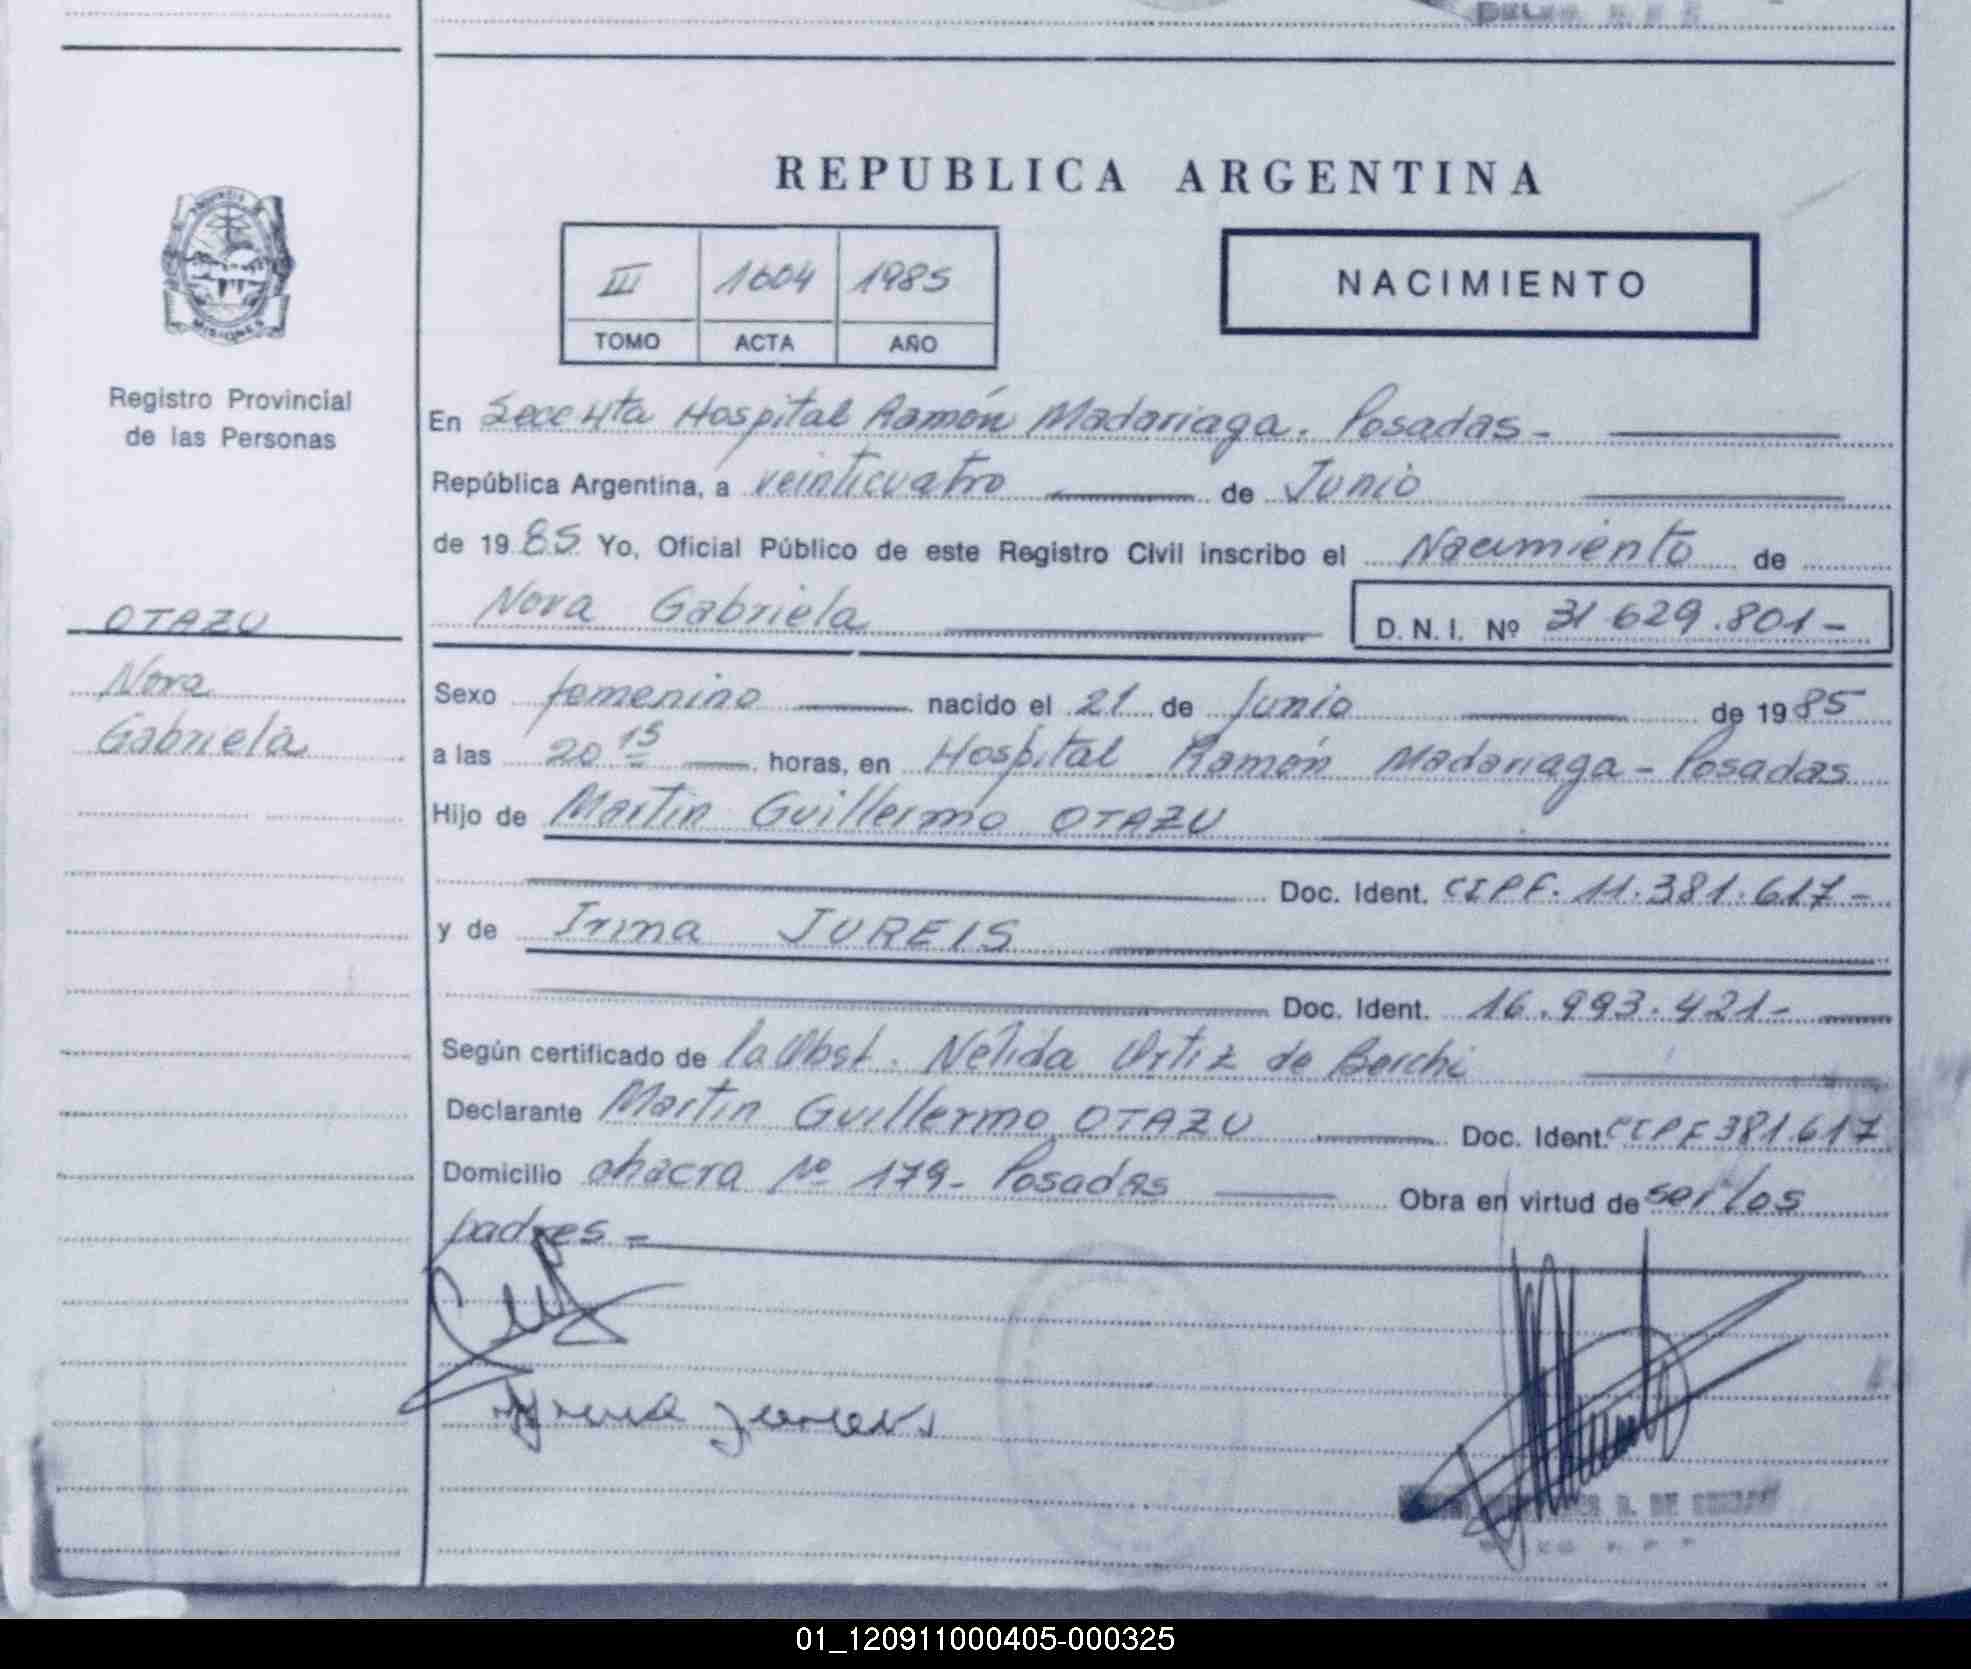 REPUBLICA ARGENTINA
III 1604 1985
TOMO ACTA AÑO
NACIMIENTO
MISIONES
Registro Provincial
de las Personas
OTAZU
Nora
Gabriela
En Secc 4ta Hospital Ramón Madariaga. Posadas -
República Argentina, a veinticuatro de Junio
de 1985 Yo, Oficial Público de este Registro Civil inscribo el Nacimiento de
Nora Gabriela D. N. I. Nº 31 629.801 -
Sexo femenino nacido el 21 de Junio de 1985
a las 20 15 horas, en Hospital Ramón Madariaga - Posadas
Hijo de Martin Guillermo OTAZU
Doc. Ident. CIPF. 11.381.617 -
y de Irma JUREIS
Doc. Ident. 16.993.421 -
Según certificado de la Obst. Nélida Ortiz de Berchi
Declarante Martin Guillermo OTAZU Doc. Ident. CIPF 381.617
Domicilio chacra Nº 179 - Posadas Obra en virtud de ser los
padres -
DE
01_120911000405-000325